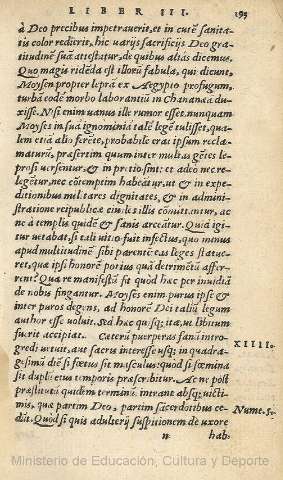 LIBER III. 195
à Deo precibus impetrauerit, et in cutẽ sanita-
tis color redierit, hic varijs sacrificijs Deo gra-
titudinẽ suã attestatur, de quibus aliàs dicemus.
Quo magis ridẽda est illorũ fabula, qui dicunt,
Moysen propter leprã ex Aegypto profugum,
turbã eodẽ morbo laborantiũ in Chananæã du-
xisse. Nisi enim vanus ille rumor esset, nunquam
Moyses in suã ignominiã talẽ legẽ tulisset, qua-
lem etiã alio ferẽte, probabile erat ipsum recla-
maturũ, præsertim quum inter multas gẽtes le-
prosi versentur, & in pretio sint: et adeo nec re-
legẽtur, nec cõtemptim habeãtur, ut & in expe-
ditionibus militares dignitates, & in admini-
stratione reipublicæ ciuiles illis cõmittantur, ac
nec à templis quidẽ & fanis arceãtur. Quid igi-
tur vetabat, si tali vitio fuit infectus, quo minus
apud multitudinẽ sibi parentẽ eas leges statue-
ret, quæ ipsi honorẽ potius quã detrimẽtũ affer-
rent? Qua re manifestũ fit quòd hæc per inuidiã
de nobis fingantur. Moyses enim purus ipse &
inter puros degens, ad honorẽ Dei talium legum
author esse voluit. Sed hæc quisq; ita, ut libitum
fuerit accipiat. Cæterũ puerperas fani intro-
XIIII.
gredi vetuit, aut sacris interesse usq; in quadra-
gesimũ diẽ si fœtus sit masculus: quòd si fœmina
sit duplũ eius temporis præscribitur. At nec post
præstitutũ quidem terminũ intrant absq; victi-
mis, quæ partim Deo, partim sacerdotibus ce-
Nume. 5.
dãt. Quòd si quis adulterij suspitionem de uxore
n hab-
Ministerio de Educación, Cultura y Deporte